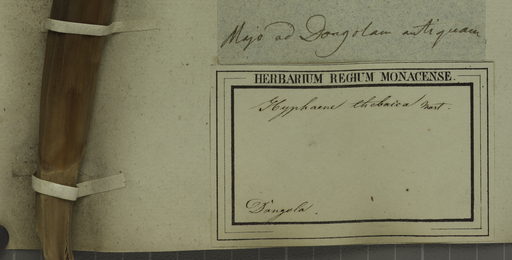 Majo ad Dongolam antiquam
HERBARIUM REGIUM MONACENSE.
Hyphaene thebaica Mart.
Dongola.